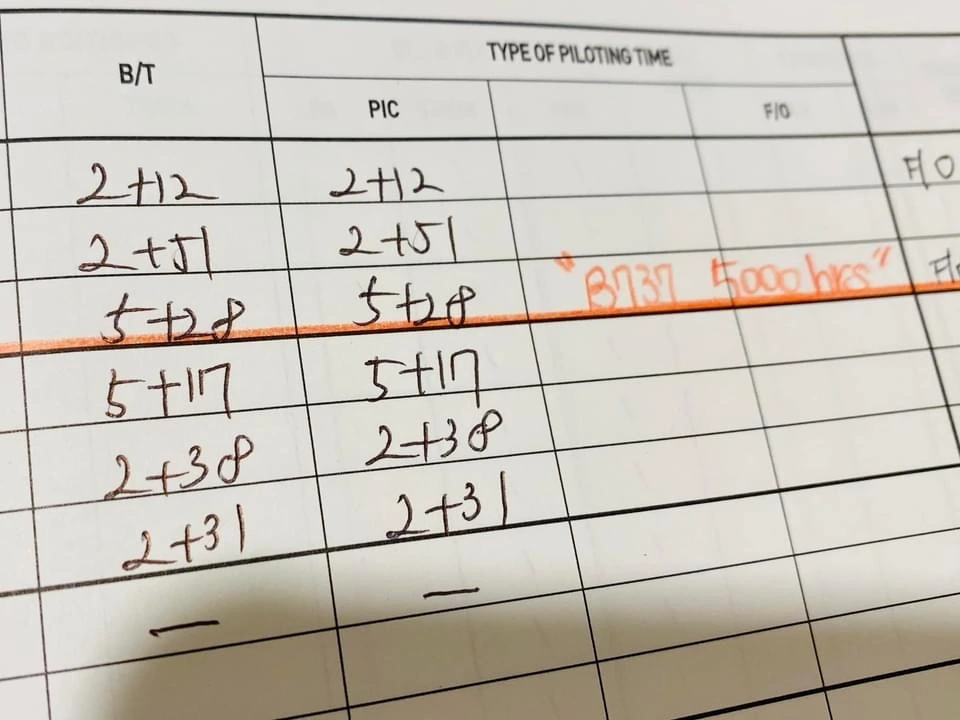 B/T TYPE OF PILOTING TIME
PIC F/O
2+12 2+12 F/O
2+51 2+51
5+28 5+28 "B737 5000hrs"
5+17 5+17
2+38 2+38
2+31 2+31
— —